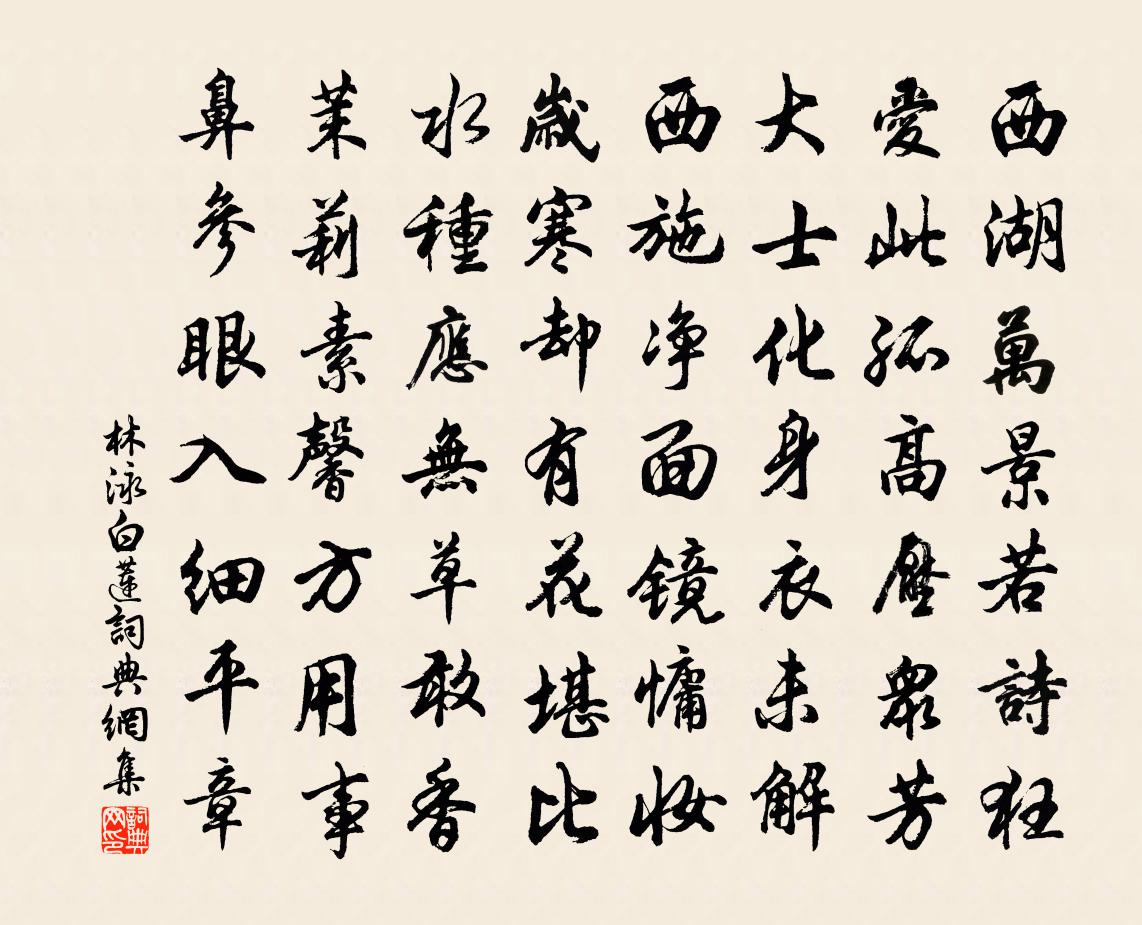 西湖萬景若詩狂
愛此孤高壓眾芳
大士化身衣未解
西施净面镜慵妆
歲寒却有花堪比
水種應無草敢香
茉莉素馨方用事
鼻參眼入細平章
林泳白蓮詞典網集
詞典网印